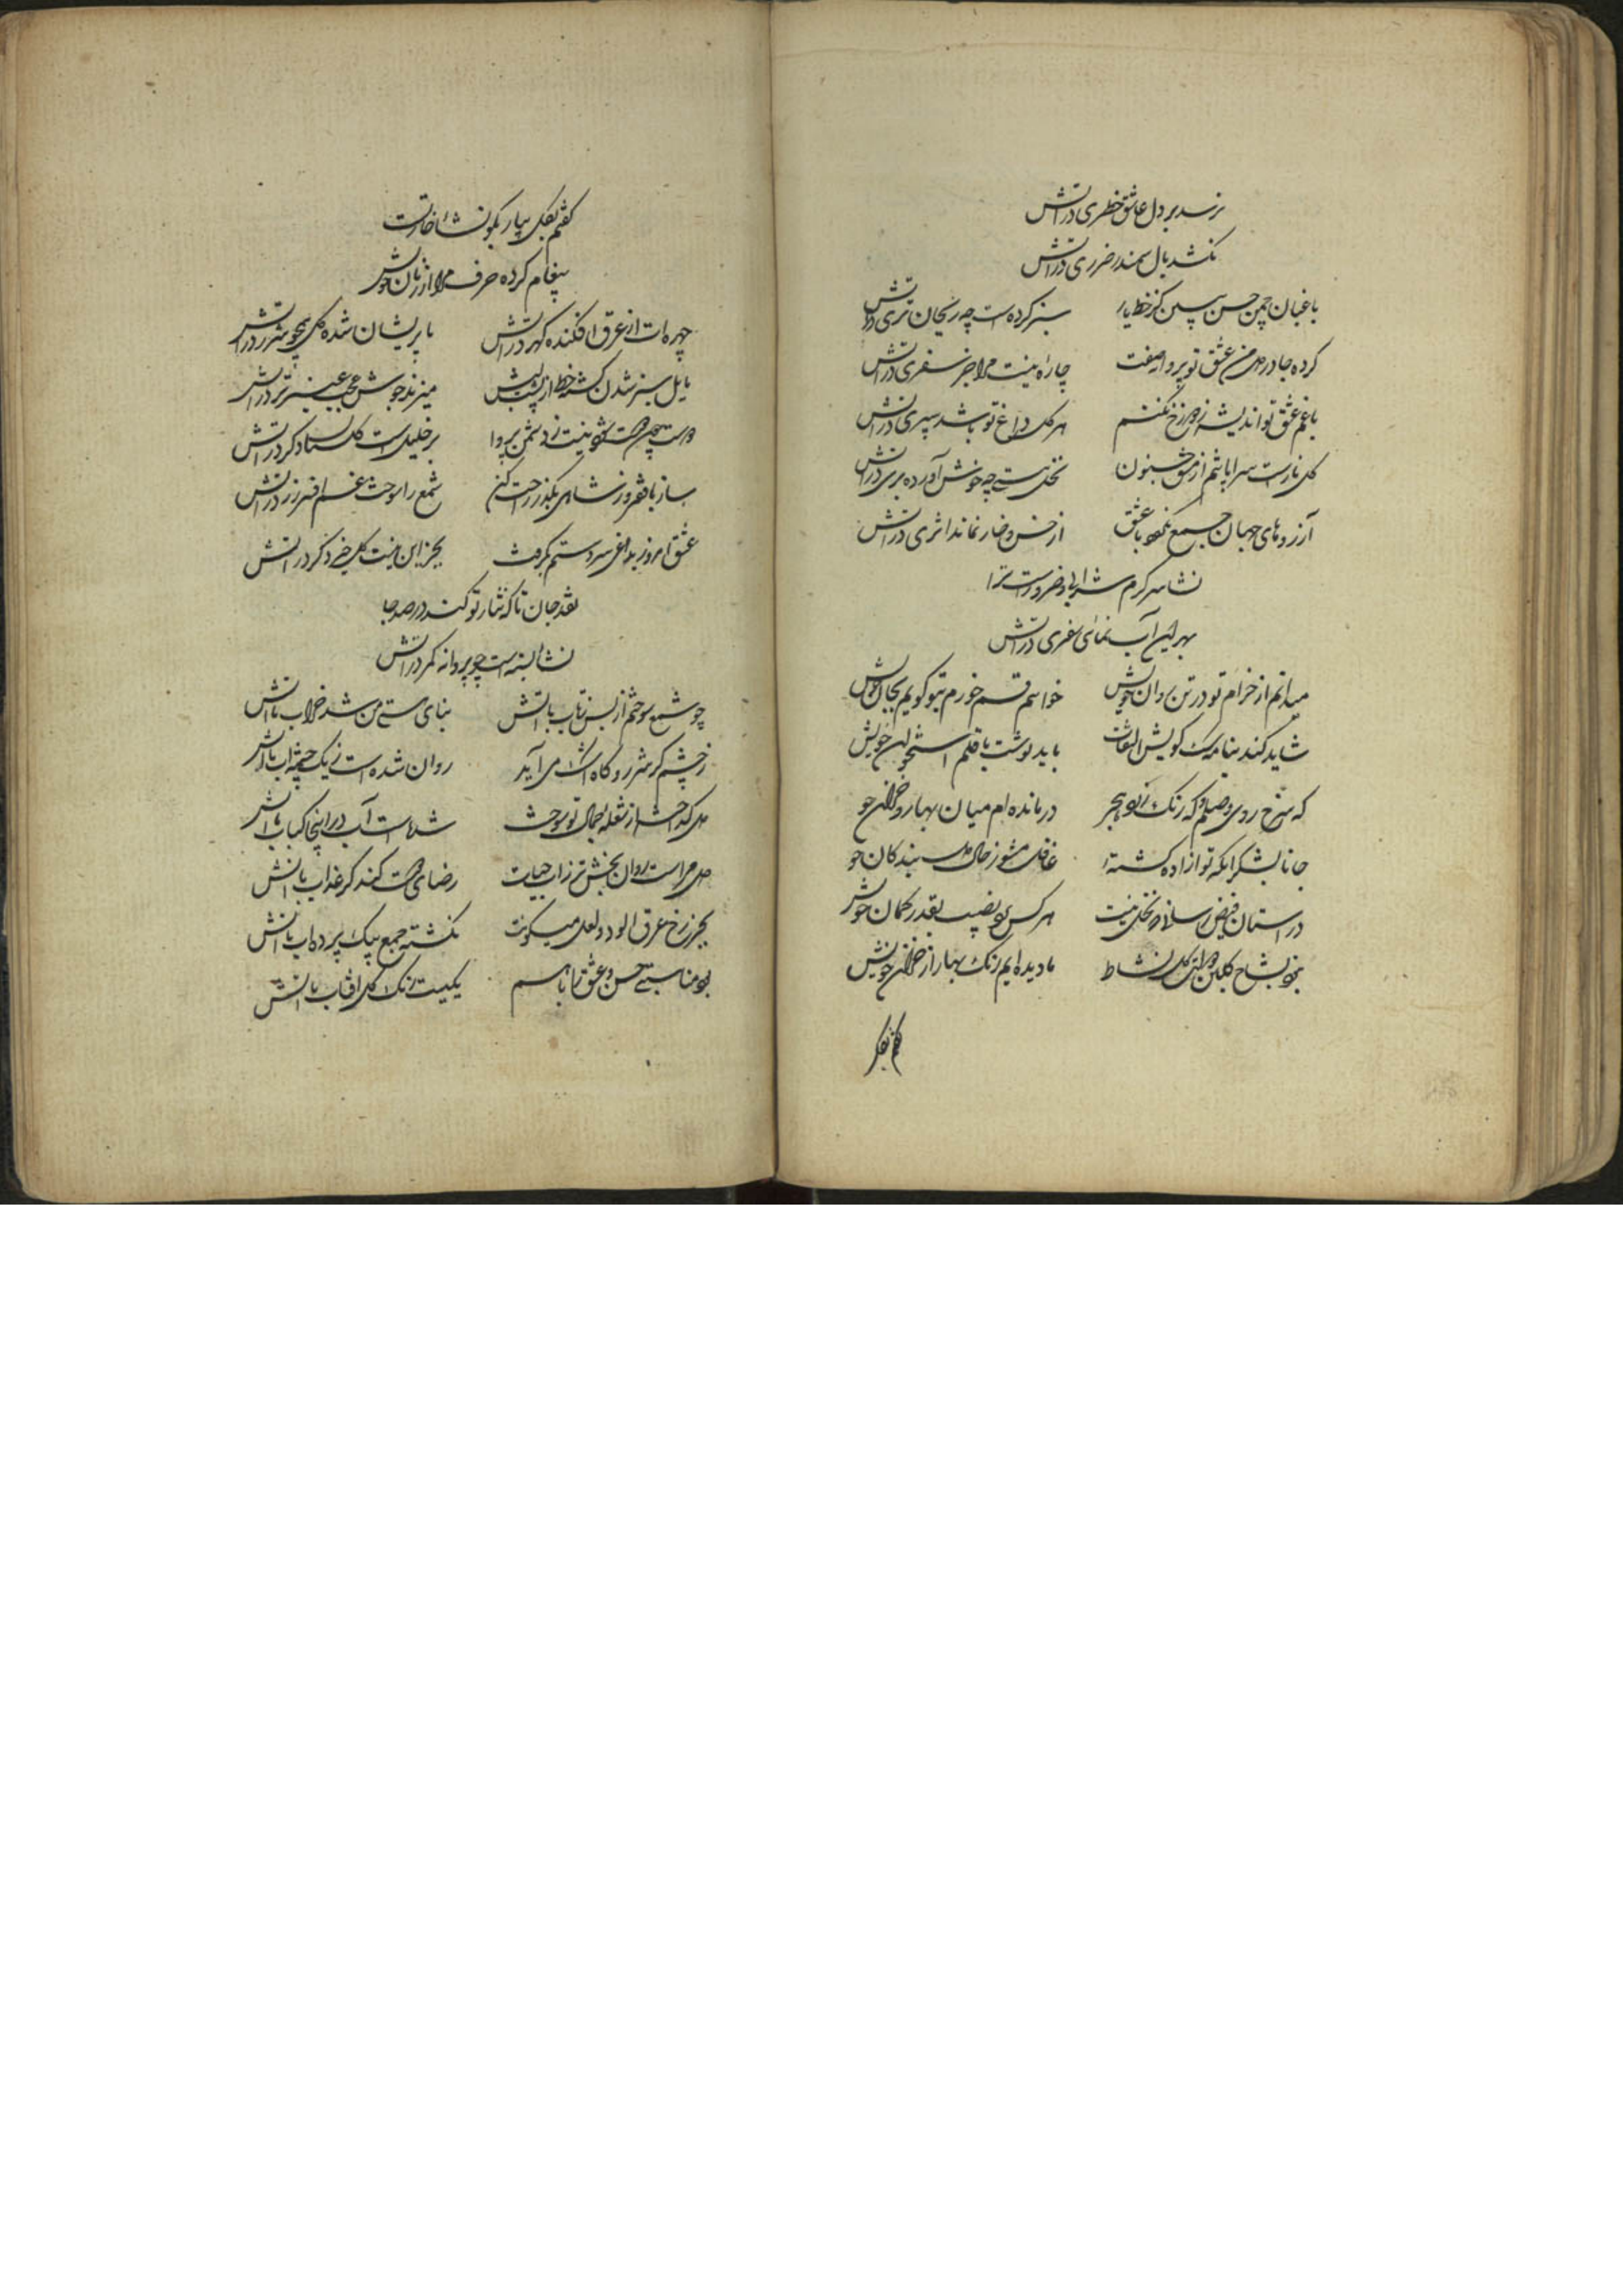 نرسد بر دل عاشق خطری در آتش
نکشد بال سمندر ضرری در آتش
باغبان چمن حسن ببین کز خط یار سبز کرده است چه ریحان تری در آتش
کرده جا در دل من عشق تو پروانه صفت چاره نیست مرا جز سفری در آتش
با غم عشق تو اندیشه ز دوزخ نکنم هر گل داغ تو باشد سپری در آتش
گل نازست سراپا تنم از شوق جنون نخل هستی چه خوش آورده بری در آتش
آرزوهای جهان جمع نگردد با عشق از خس و خار نماند اثری در آتش
نشأ سرگرم شرابی و ضرورست ترا
بهر این آب نمای سفری در آتش
میدانم از خرام تو در تن روان خویش خواهم قسم خورم بتو گویم بجان خویش
شاید کند بنامه سگ کویش التفات باید نوشت با قلم استخوان خویش
که سرخ روی وصلم و که رنگ زرد هجر درمانده ام میان بهار و خزان خو
جانا بشکر آنکه تو آزاده گشته غافل مشو ز حال دل بندکان خو
در آستان فیض رسا نارو بخل نیست هر کس برد نصیب بقدر گمان خویش
بخود بشاخ گلبن و برگ گل نشاط ما دیده ایم رنگ بهار از خزان خویش
گفتم بفکر
گفتم بفکر بیار بگو نشأ خاترت
پیغام کرده حرف مرا از زبان خویش
چهره ات از عرق افکنده گهر در آتش یا پریشان شده گل همچو شرر در آتش
مایل سبز شدن گشته خط از پشت لبش میزند جوش عجب عنبر تر در آتش
دوست چون هست نیست ز دشمن پروا بر خلیل است گلستان دگر در آتش
ساز با فقر و ز شاهی بگذر راحت کن شمع را سوخت غم افسر زر در آتش
عشق امروز بداغی سر دستم بگرفت بجز این نیست گل خیر دگر در آتش
نقد جان تا که نثار تو کند در همه جا
نشأ بسته است چو پروانه کمر در آتش
چو شمع سوختم از بس ز تاب با آتش بنای هستی من شد خراب با آتش
ز چشم گه شرر و گاه اشک می آید روان شده است ز یک چشمه آب با آتش
دل گداخته از شعله جمال تو سوخت شده است آب در اینجا کباب با آتش
دل مراست روان بخش تر ز آب حیات رضای دوست کند گر عذاب با آتش
بجز رخ عرق آلود و لعل میگونت نگشته جمع بیک پرده آب با آتش
بود مناسبتی حسن و عشق را با هم یکیست رنگ گل آفتاب با آتش